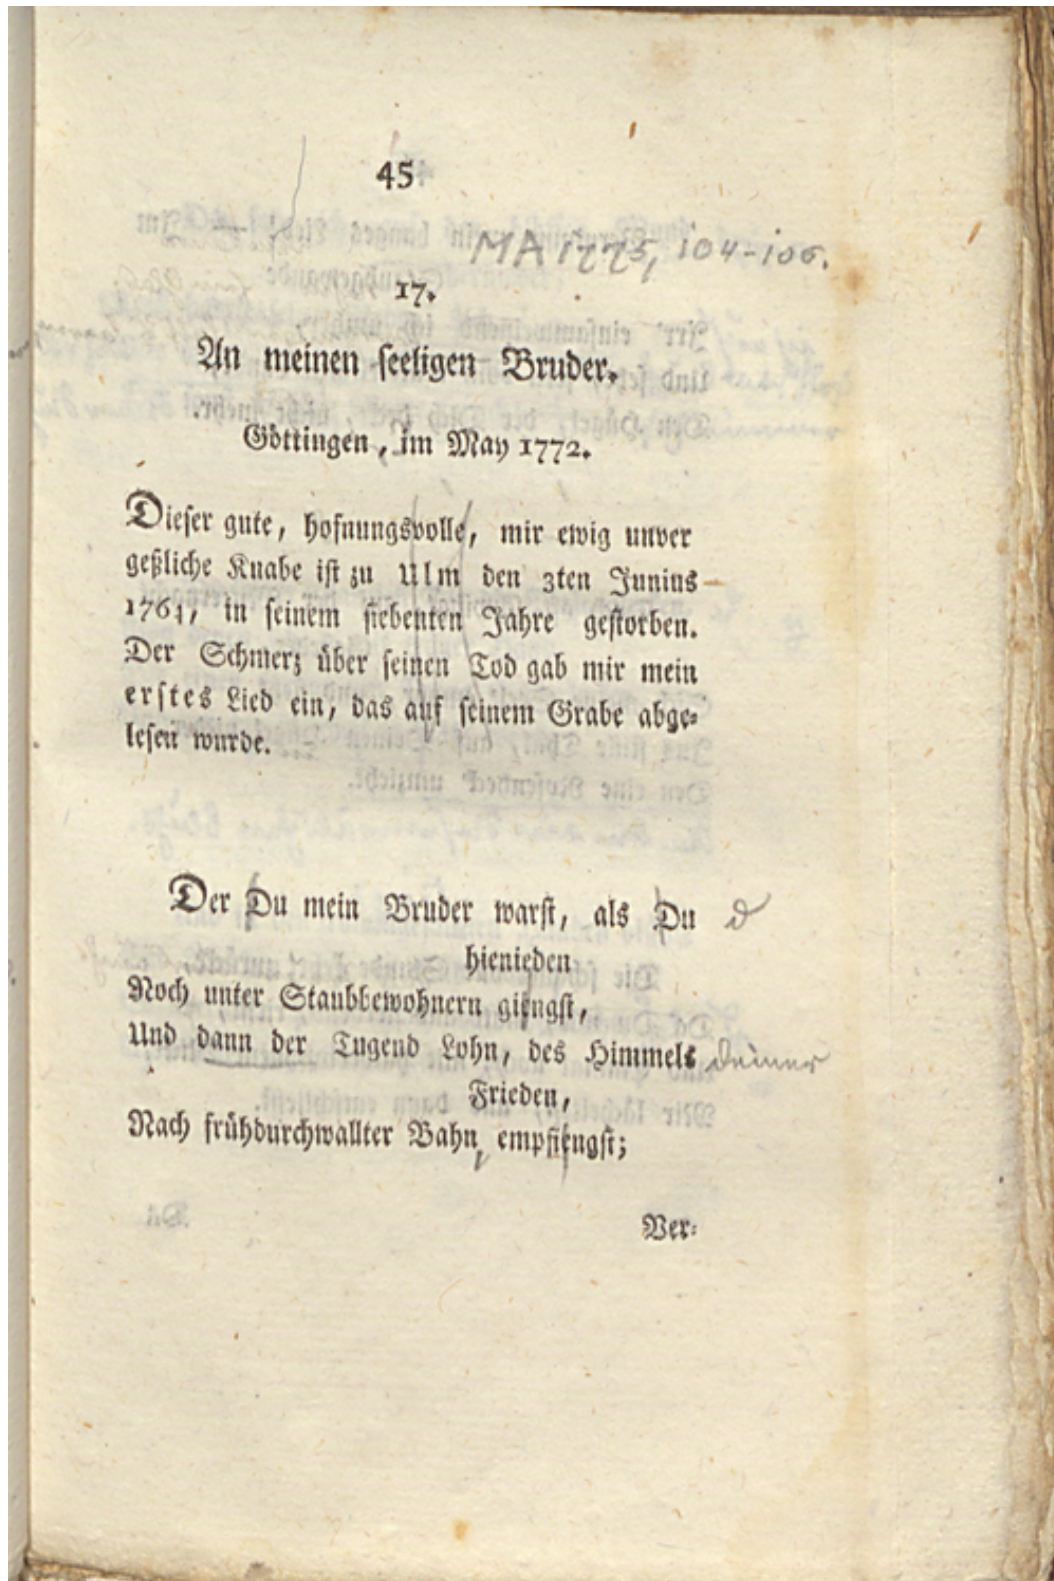 45
MA 1775, 104-106.
17.
An meinen seeligen Bruder.
Göttingen, im May 1772.
Dieser gute, hofnungsvolle, mir ewig unver
geßliche Knabe ist zu Ulm den 3ten Junius
1764, in seinem siebenten Jahre gestorben.
Der Schmerz über seinen Tod gab mir mein
erstes Lied ein, das auf seinem Grabe abge-
lesen wurde.
Der Du mein Bruder warst, als Du d
hienieden
Noch unter Staubbewohnern giengst,
Und dann der Tugend Lohn, des Himmels deiner
Frieden,
Nach frühdurchwallter Bahn, empfiengst;
Ver-